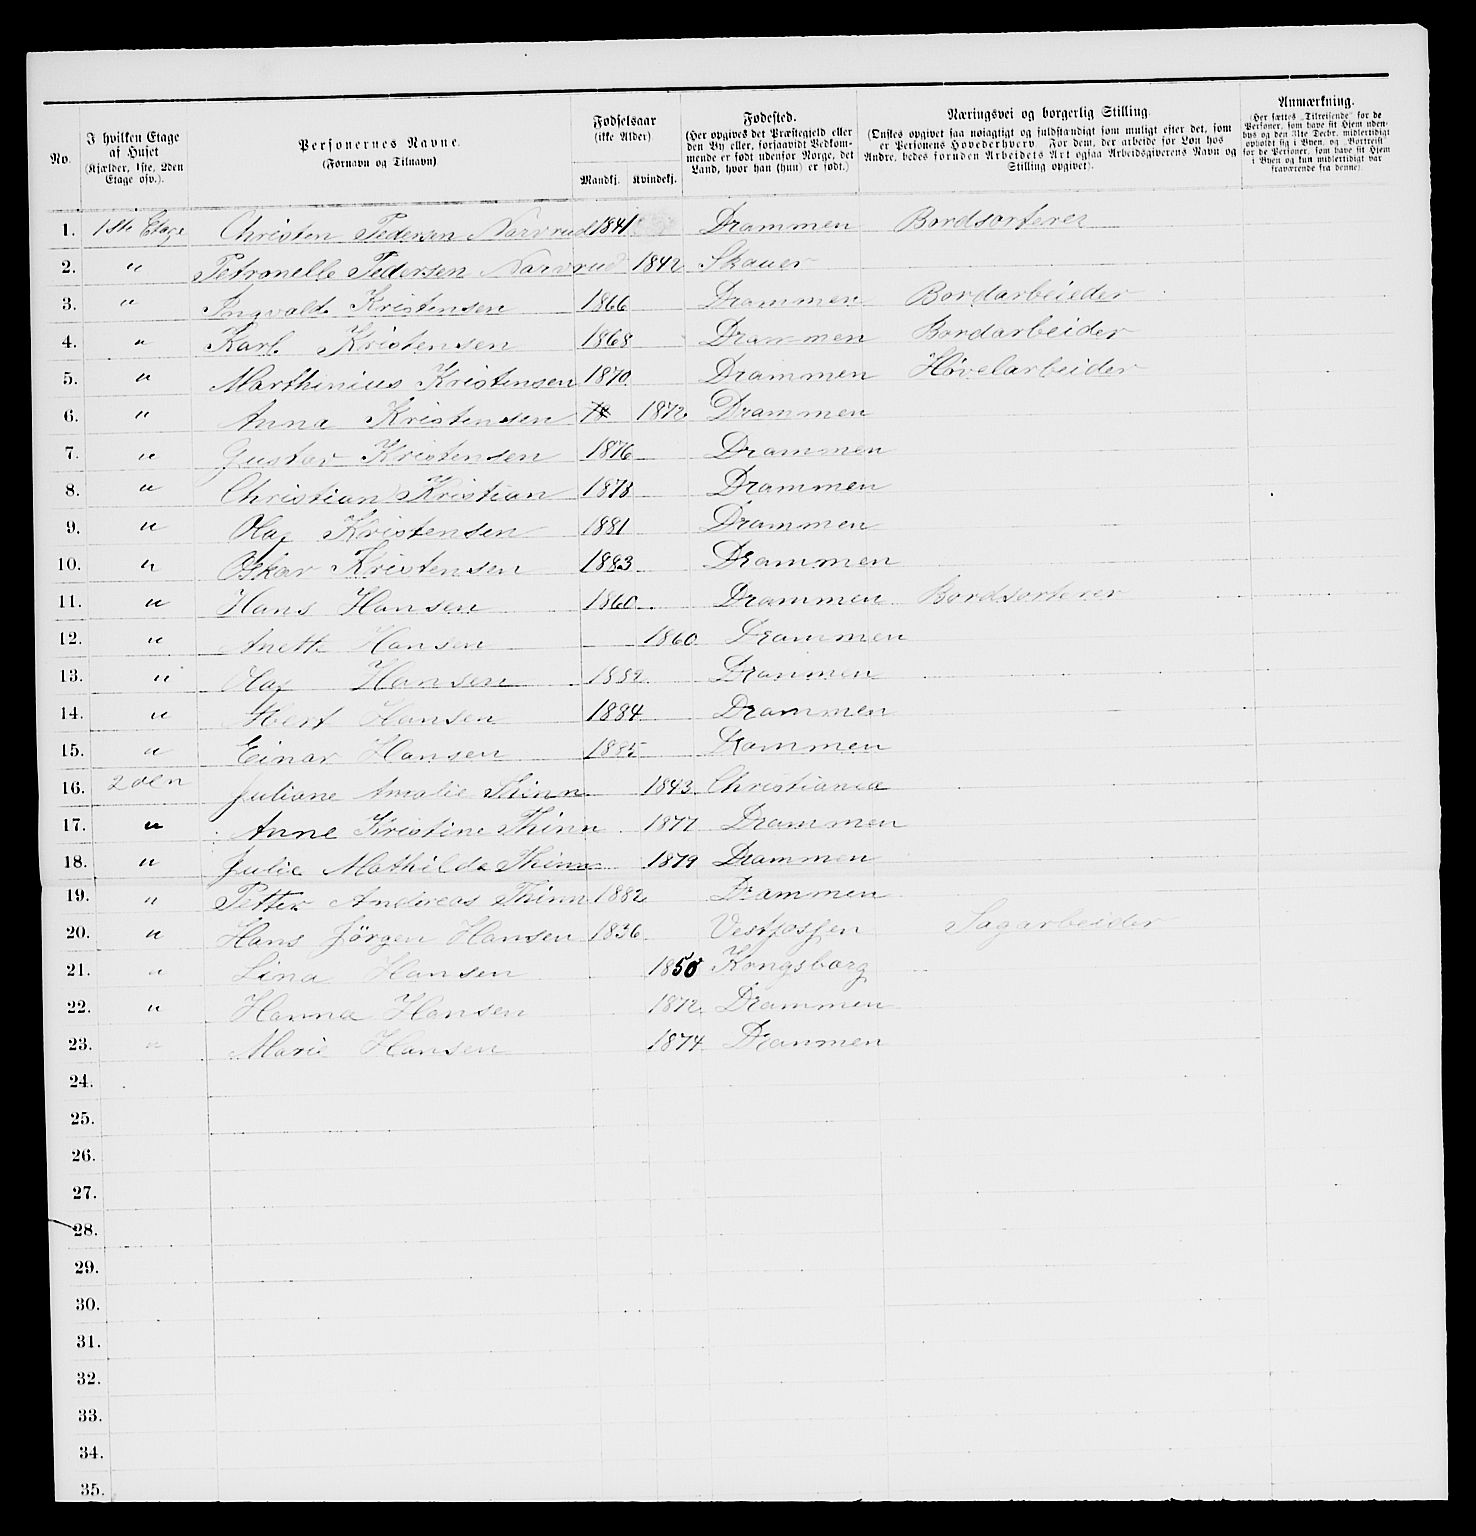 No.
I hvilken Etage af Huset (Kjælder, 1ste, 2den Etage osv.).
Personernes Navne. (Fornavn og Tilnavn)
Fødselsaar (ikke Alder) Mandkj. Kvindekj.
Fødested. (Her opgives det Præstegjeld eller den By eller, forsaavidt Vedkommende er født udenfor Norge, det Land, hvor han (hun) er født.)
Næringsvei og borgerlig Stilling. (Ønskes opgivet saa nøiagtigt og fuldstændigt som muligt efter det, som er Personens Hovederhverv. For dem, der arbeide for Løn hos Andre, bedes foruden Arbeidets Art ogsaa Arbeidsgiverens Navn og Stilling opgivet).
Anmærkning. (Her sættes „Tilreisende" for de Personer, som have sit Hjem udenbys og den 31te Decbr. midlertidigt opholdt sig i Byen, og „Bortreist" for de Personer, som have sit Hjem i Byen og kun midlertidigt var fraværende fra denne).
1. 1ste Etage Christen Pedersen Narvrud 1841 Drammen Bordsorterer
2. " Petronelle Pedersen Narvrud 1842 Skauer
3. " Ingvald Kristensen 1866 Drammen Bordarbeieder
4. " Karl Kristensen 1868 Drammen Bordarbeider
5. " Marthinius Kristensen 1870 Drammen Høvelarbeider
6. " Anna Kristensen 18 1872 Drammen
7. " Gustav Kristensen 1876 Drammen
8. " Christian Kristian 1878 Drammen
9. " Olaf Kristensen 1881 Drammen
10. " Oskar Kristensen 1883 Drammen
11. " Hans Hansen 1860 Drammen Bordsorterer
12. " Anette Hansen 1860 Drammen
13. " Olaf Hansen 1882 Drammen
14. " Albert Hansen 1884 Drammen
15. " Einar Hansen 1885 Drammen
16. 2den Juliane Amalie Thinn 1843 Christiania
17. " Anne Kristine Thinn 1877 Drammen
18. " Julie Mathilde Thinn 1879 Drammen
19. " Petter Andreas Thinn 1882 Drammen
20. " Hans Jörgen Hansen 1836 Vestfossen Sagarbeider
21. " Lina Hansen 1850 Kongsbarg
22. " Hanna Hansen 1872 Drammen
23. " Marie Hansen 1874 Drammen
24.
25.
26.
27.
28.
29.
30.
31.
32.
33.
34.
35.